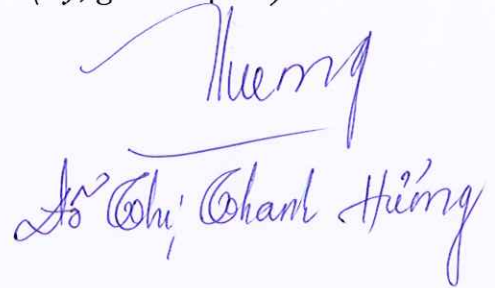 Hương
Đỗ Thị Thanh Hương